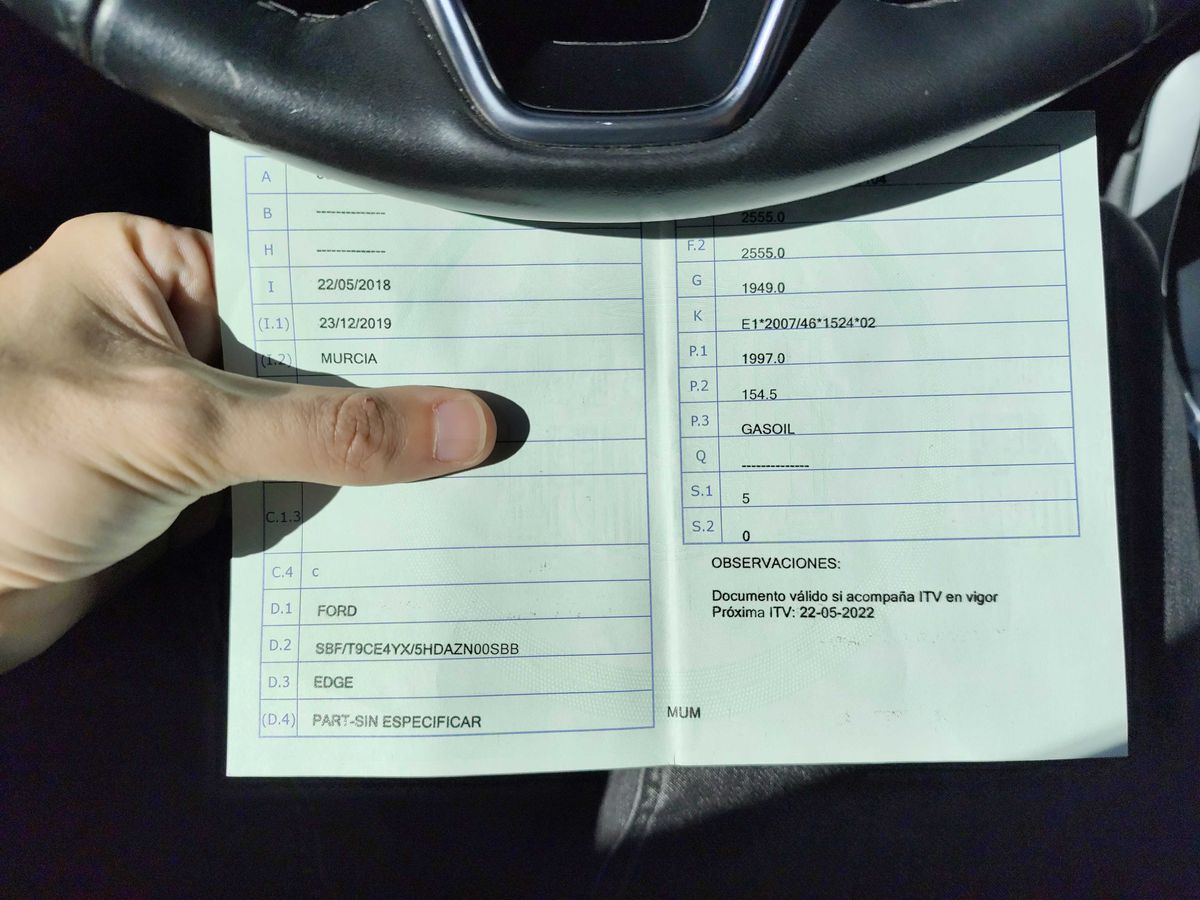 A
B --------------
H --------------
I 22/05/2018
(I.1) 23/12/2019
(I.2) MURCIA
C.1.3
C.4 c
D.1 FORD
D.2 SBF/T9CE4YX/5HDAZN00SBB
D.3 EDGE
(D.4) PART-SIN ESPECIFICAR
2555.0
F.2 2555.0
G 1949.0
K E1*2007/46*1524*02
P.1 1997.0
P.2 154.5
P.3 GASOIL
Q --------------
S.1 5
S.2 0
OBSERVACIONES:
Documento válido si acompaña ITV en vigor
Próxima ITV: 22-05-2022
MUM